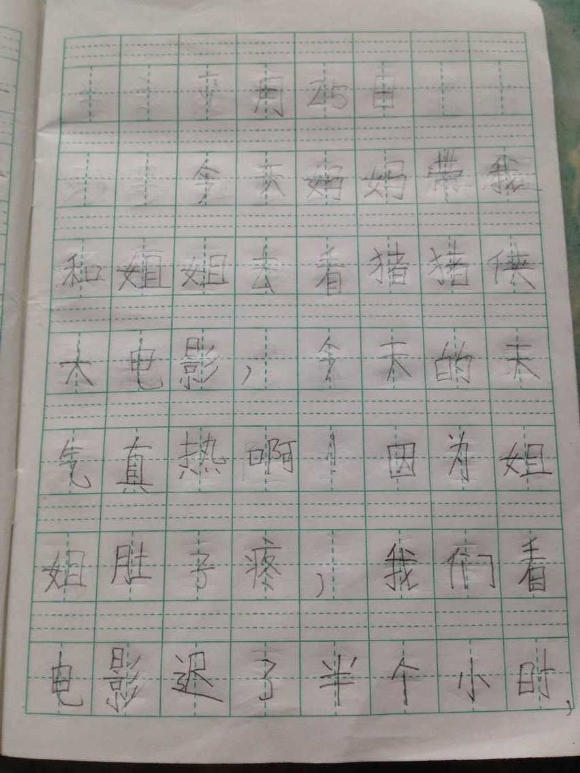 月25日
今天妈妈带我
和姐姐去看猪猪侠
大电影，今天的天
气真热啊！因为姐
姐肚子疼，我们看
电影迟了半个小时，